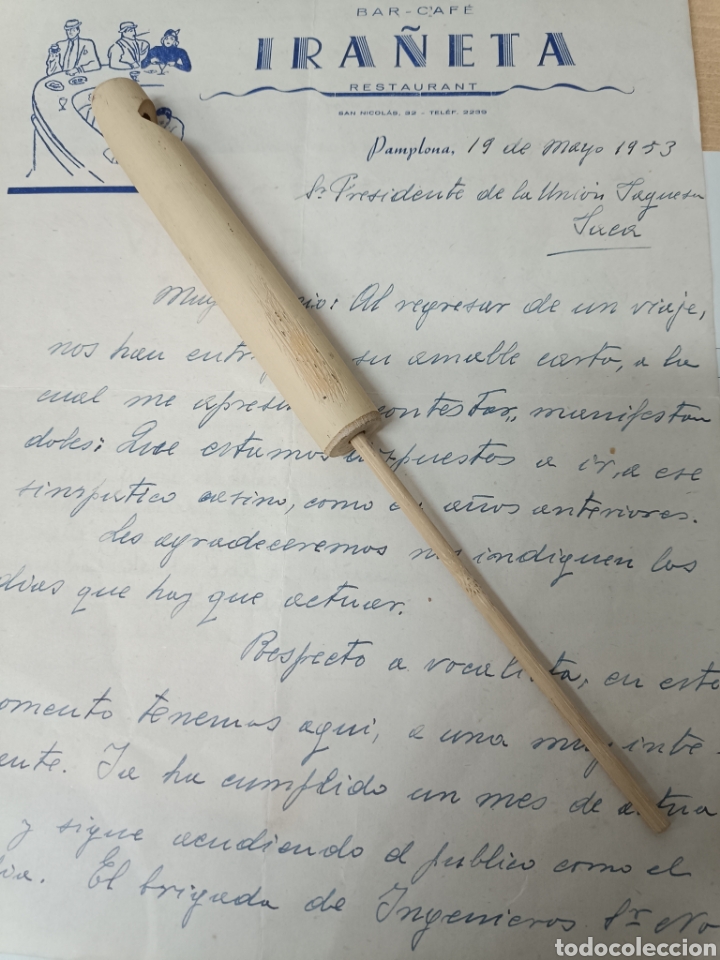 BAR-CAFÉ
IRAÑETA
RESTAURANT
SAN NICOLÁS, 32 - TELÉF. 2239
Pamplona, 19 de Mayo 1953
Sr. Presidente de la Unión Jaquesa
Jaca
Muy Al regresar de un viaje,
nos han su amable carta, a la
cual me contestar, manifestan
doles: Que estamos a ir, a ese
simpático casino, como años anteriores.
Les agradeceremos indiquen los
dias que hay que actuar.
Respecto a vocalista, en este
tenemos aqui, a una muy inte-
Ya ha cumplido un mes de
y sigue acudiendo el publico como el
El brigada de Ingenieros Sr.
todocoleccion